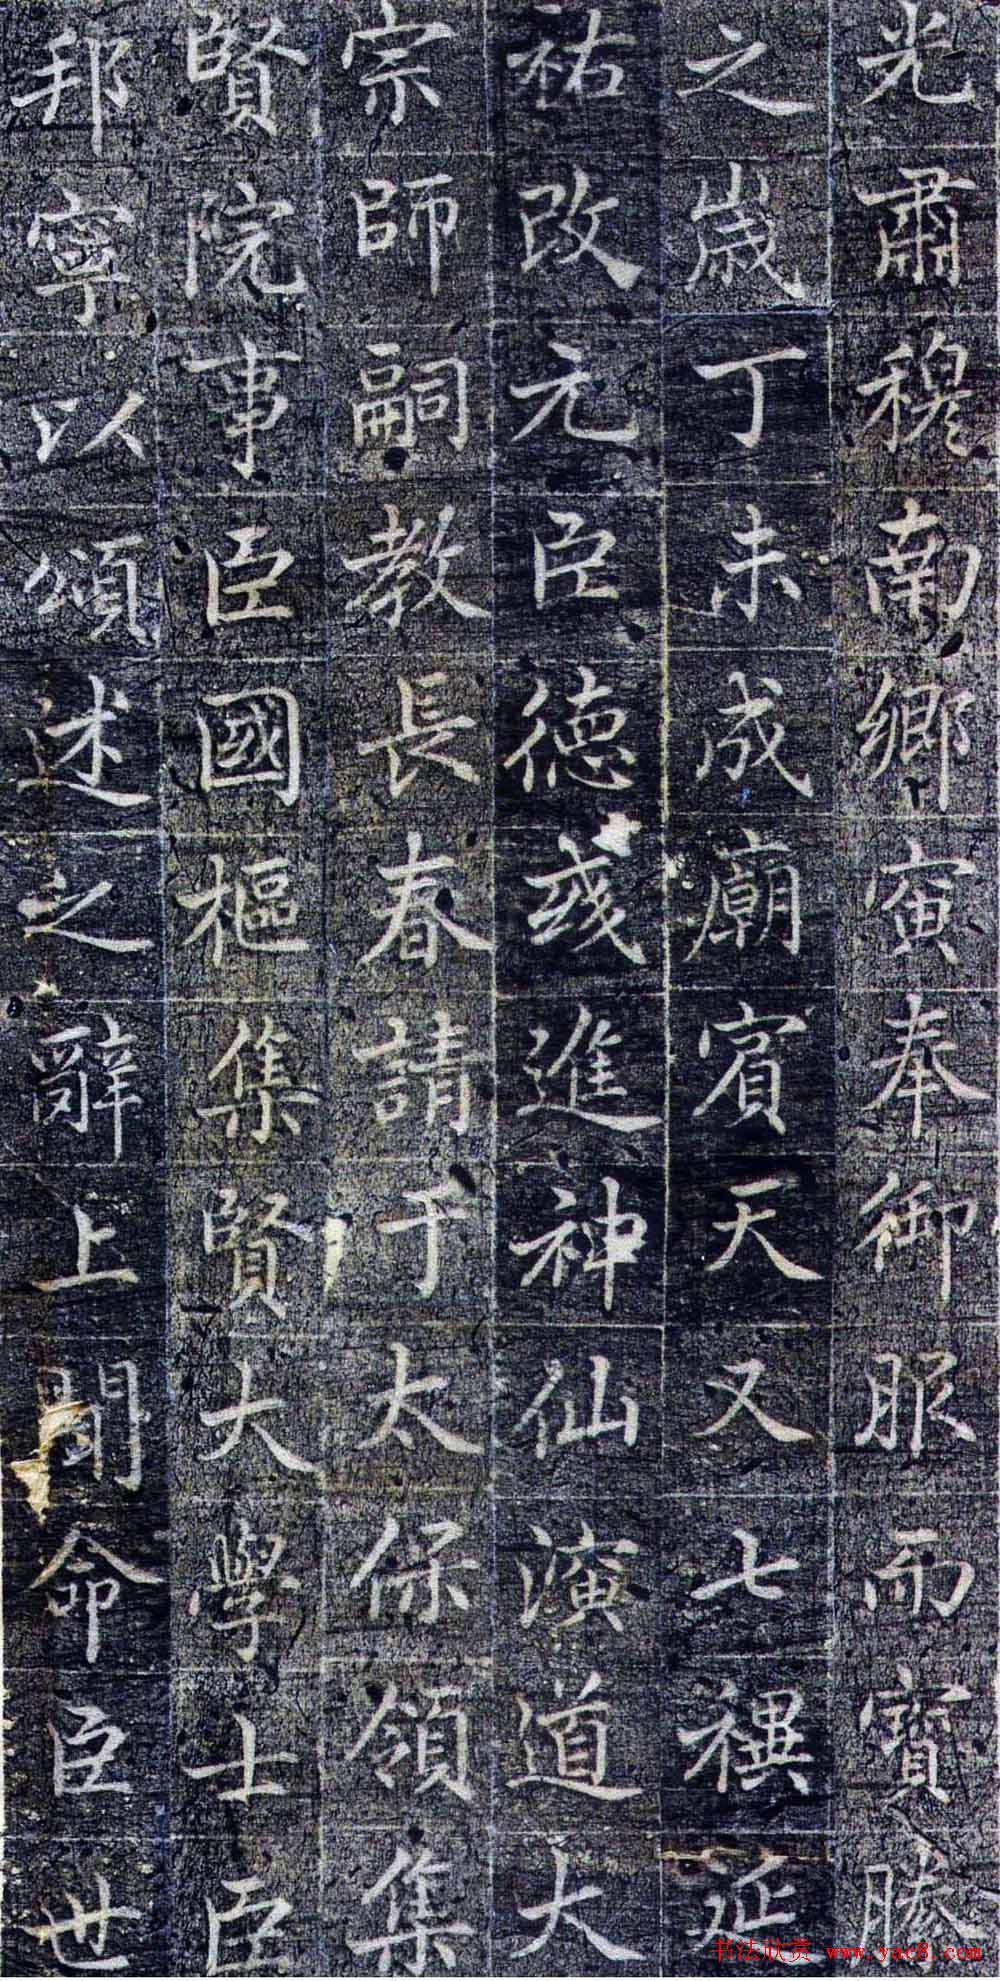 光肅穆南鄉寅奉御服而寶勝
之歲丁未成廟賓天又七禩延
祐改元臣德彧進神仙演道大
宗師嗣教長春請于太保領集
賢院事臣國樞集賢大學士臣
邦寧以頌述之辭上聞命臣世
书法欣赏 www.yac8.com